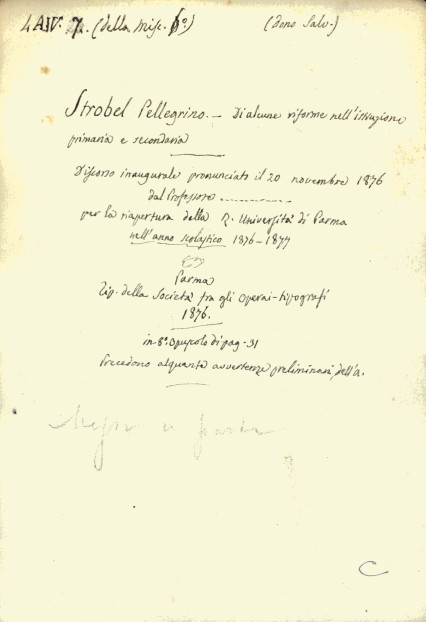 4 A IV. 7. (della Misc. 6º) (dono Salv.)
Strobel Pellegrino. — Di alcune riforme nell'istruzione
primaria e secondaria
Discorso inaugurale pronunciato il 20 novembre 1876
dal Professore ..............
per la riapertura della R. Università di Parma
nell'anno scolastico 1876-1877
Parma
Tip. della Società fra gli Operai-tipografi
1876.
in-8º Opuscolo di pag. 31
Precedono alquante avvertenze preliminari dell'a.
C